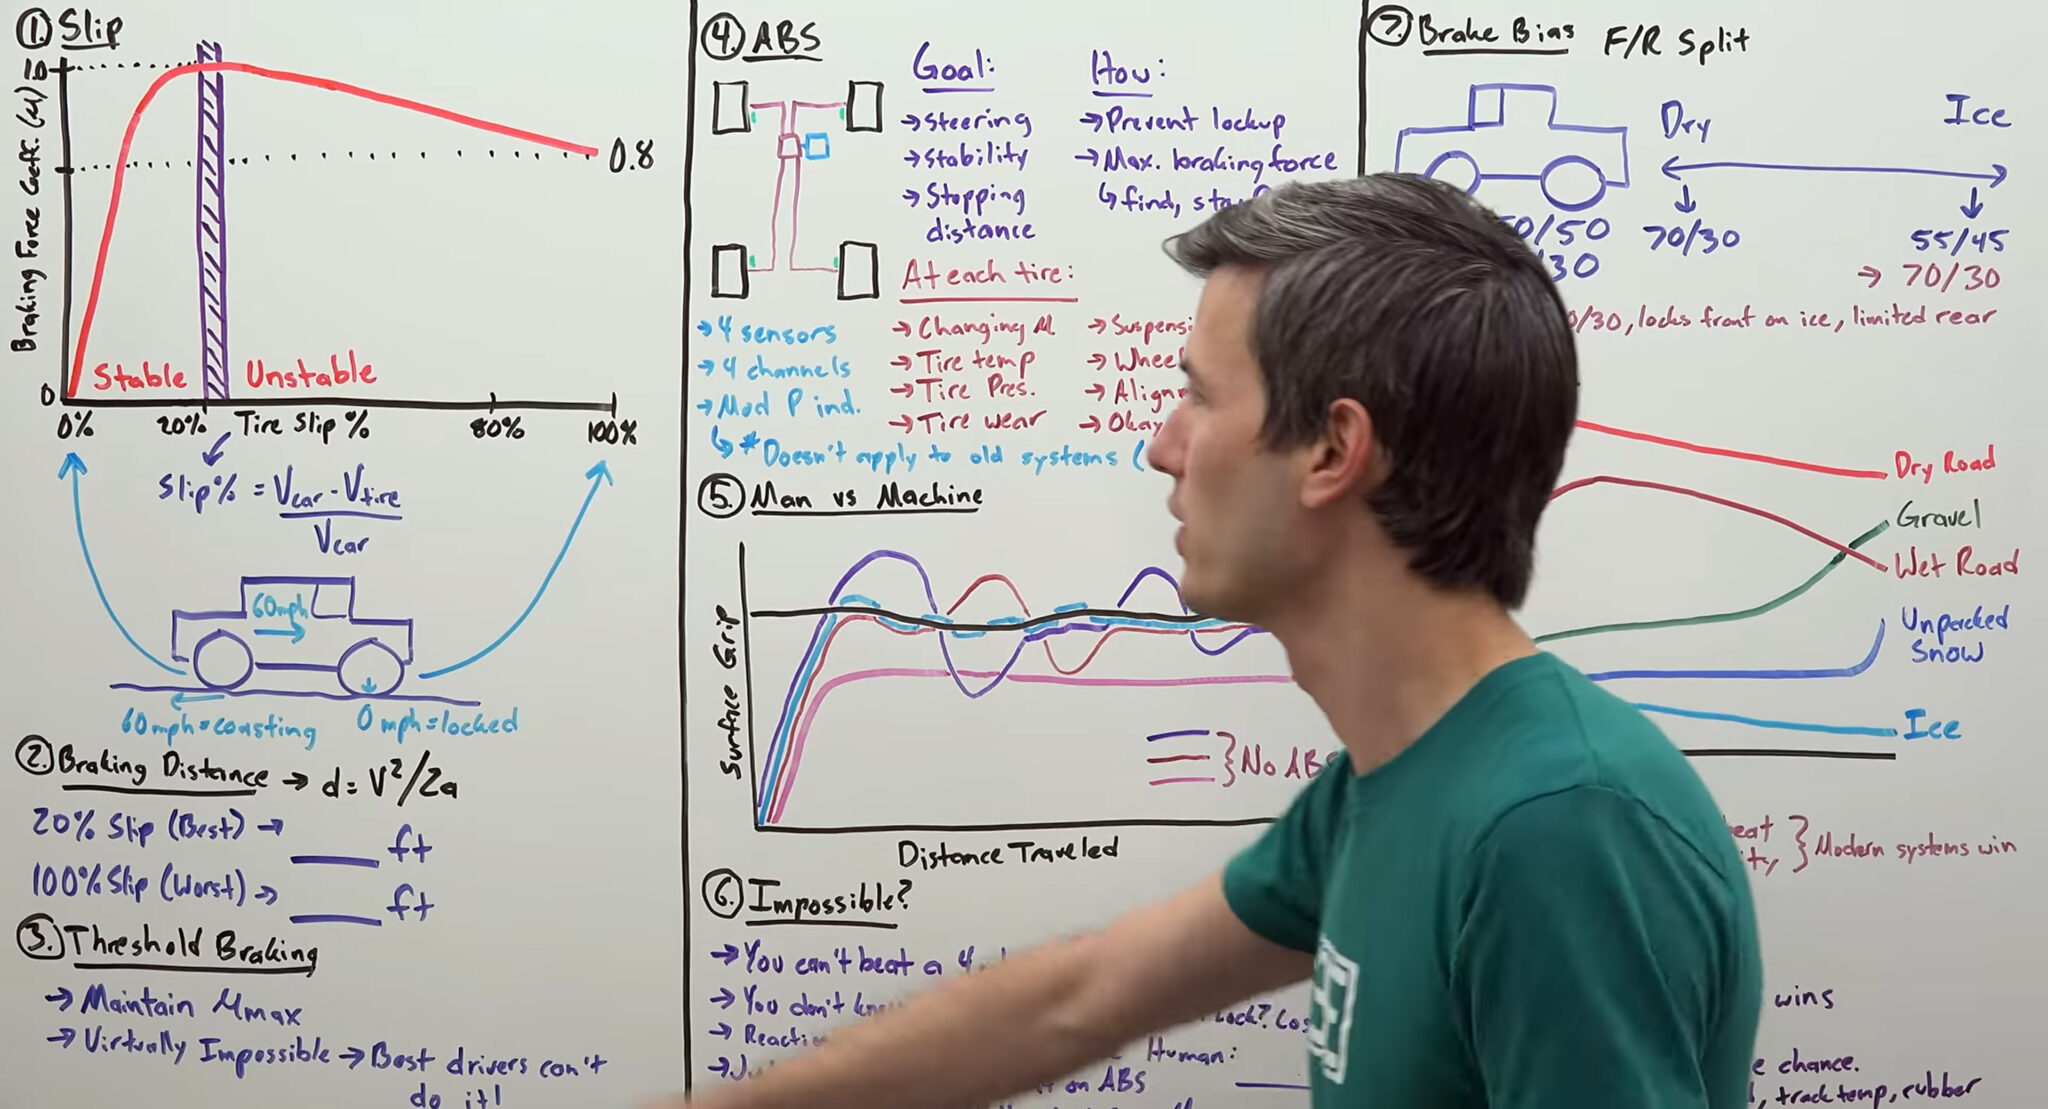 1. Slip
1.0
Braking Force Coeff. (μ)
0.8
0
Stable
Unstable
0%
20%
Tire Slip %
80%
100%
Slip% = Vcar - Vtire
Vcar
60mph
60mph=coasting
0mph=locked
2. Braking Distance → d = V²/2a
20% Slip (Best) → ____ ft
100% Slip (Worst) → ____ ft
3. Threshold Braking
→ Maintain μmax
→ Virtually Impossible → Best drivers can't
do it!
4. ABS
Goal:
→ Steering
→ Stability
→ Stopping
distance
How:
→ Prevent lockup
→ Max. braking force
↳ find,
At each tire:
→ Changing μ
→ Tire temp
→ Tire Pres.
→ Tire wear
→ Suspensi
→ Wheel
→ Alignm
→ Okay
→ 4 sensors
→ 4 channels
→ Mod P ind.
↳ *Doesn't apply to old systems (
5. Man vs Machine
Surface Grip
Distance Traveled
} No ABS
6. Impossible?
→ You can't beat a 4
→ You don't
→ Reacti
Lock?
Human:
on ABS
7. Brake Bias F/R Split
Dry
Ice
0/50
/30
70/30
55/45
→ 70/30
0/30, locks front on ice, limited rear
Dry Road
Gravel
Wet Road
Unpacked
Snow
Ice
eat
} Modern systems win
wins
chance.
, track temp, rubber